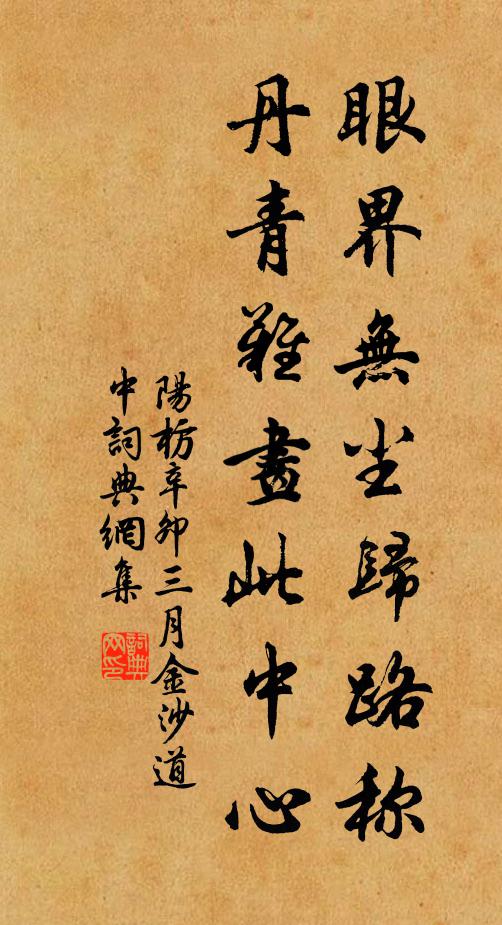 眼界無尘歸路称
丹青難畫此中心
陽枋辛卯三月金沙道
中詞典網集
詞典
网印